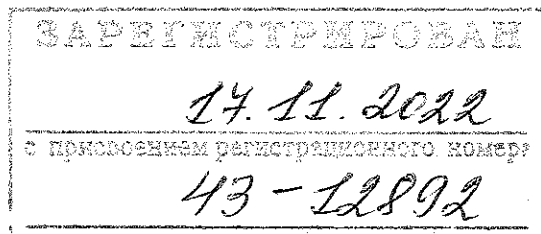 ЗАРЕГИСТРИРОВАН
17.11.2022
с присвоением регистрационного номера
43-12892